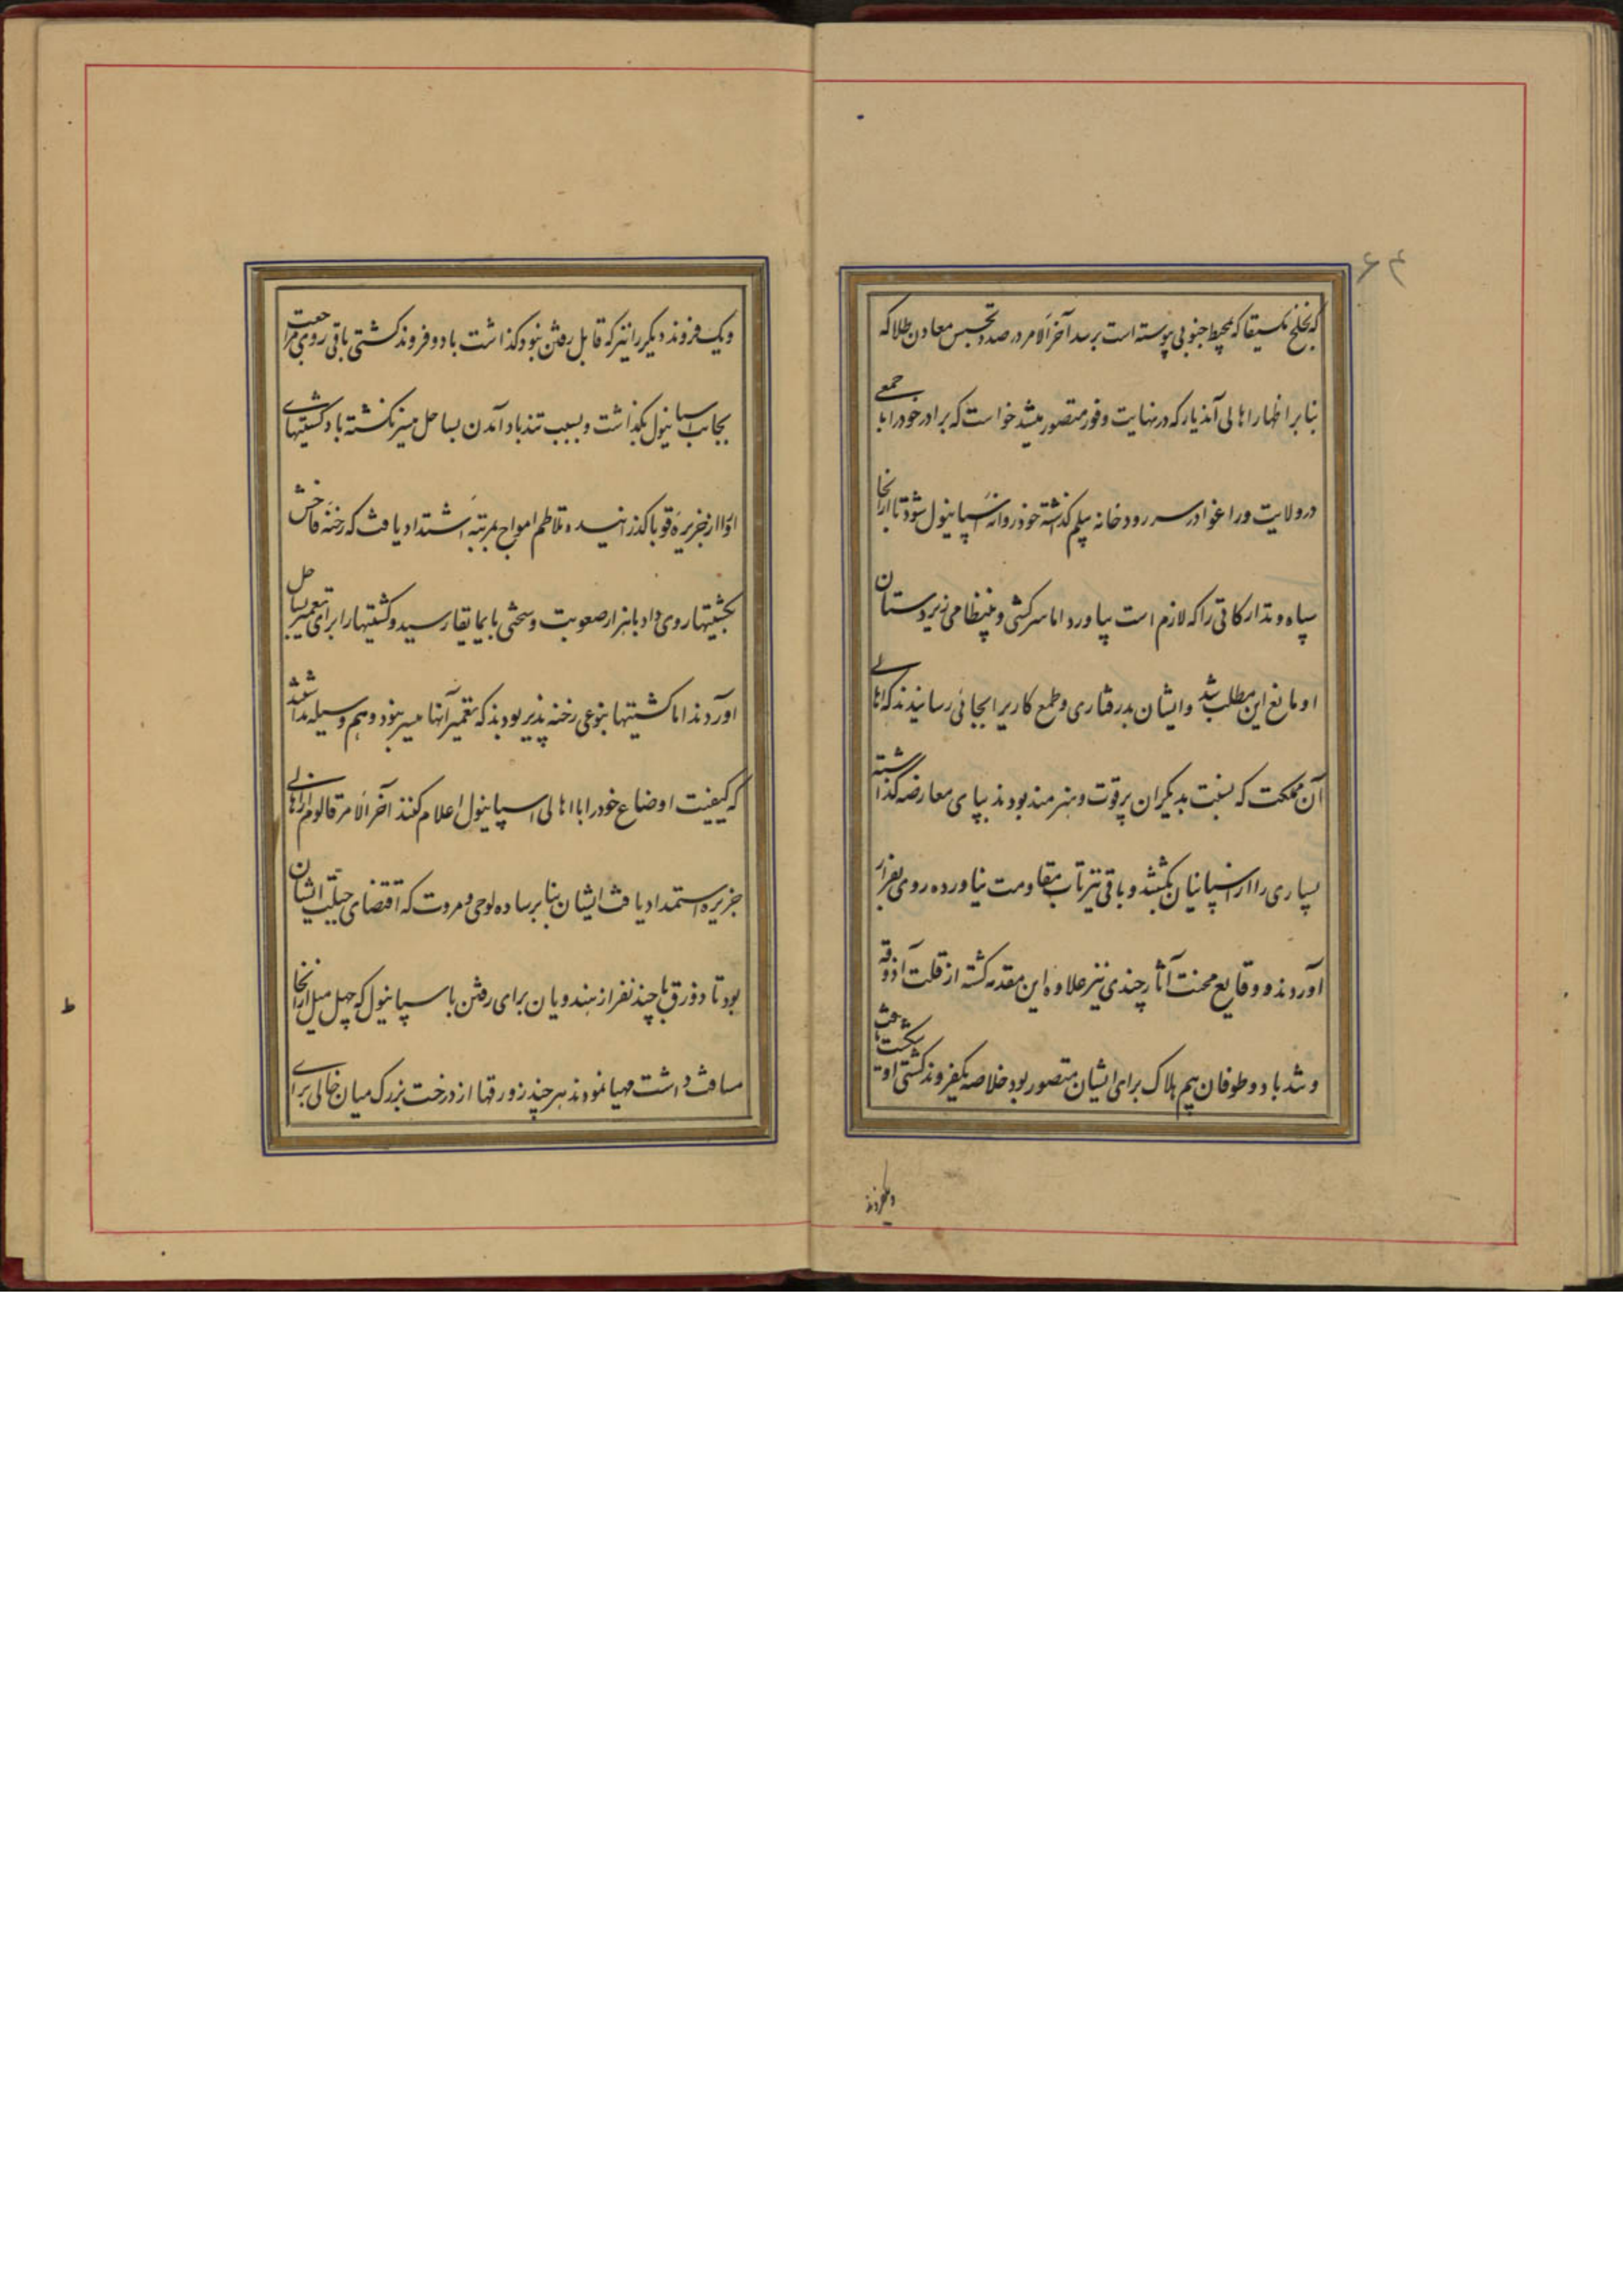 ۶۴
که بخلیج مکسیقا که بمحیط جنوبی پیوسته است برسد آخر الامر در صدد تجسس معادن طلا که
بنابر اظهار اهالی آندیار که در نهایت وفور متصور میشد خواست که برادر خود را با جمعی
در ولایت وراغوا در سر رودخانه بیلم گذاشته خود روانه اسپانیول شود تا از آنجا
سپاه و تدارکاتی را که لازم است بیاورد اما سرکشی و بینظامی زیردستان
او مانع این مطلب شد و ایشان بدرفتاری و طمع کاریرا بجائی رسانیدند که اهالی
آن مملکت که نسبت بدیگران پرقوت و هنرمند بودند بپای معارضه گذاشته
بسیاری را از اسپانیان بکشتند و باقی نیز تاب مقاومت نیاورده روی بفرار
آوردند و وقایع محنت آثار چندی نیز علاوه این مقدمه گشته از قلت آذوقه
و شد باد و طوفان بیم هلاک برای ایشان متصور بود خلاصه یکفروند کشتی او شکست یافت
ویکفروند
ویکفروند دیگر را نیز که قابل رفتن نبود گذاشت با دو فروند کشتی باقی روی مراجعت
بجانب اسپانیول بگذاشت و بسبب تندباد آمدن بساحل میسر نگشته باد کشتیهای
او را از جزیره قوبا گذرانیده و تلاطم امواج بمرتبه اشتداد یافت که رخنه فاحش
بکشتیها روی داد با هزار صعوبت و سختی با یمایقا رسید و کشتیها را برای تعمیر بساحل
آوردند اما کشتیها بنوعی رخنه پذیر بودند که تعمیر آنها میسر نبود و هم وسیله نداشتند
که کیفیت اوضاع خود را با اهالی اسپانیول اعلام کنند آخر الامر قالوم از اهالی
جزیره استمداد یافت ایشان بنابر ساده لوحی و مروت که اقتضای جبلت ایشان
بود تا دو زرق با چند نفر از هندویان برای رفتن با سپانیول که چهل میل از آنجا
مسافت داشت مهیا نمودند هر چند زورقها از درخت بزرک میان خالی برای